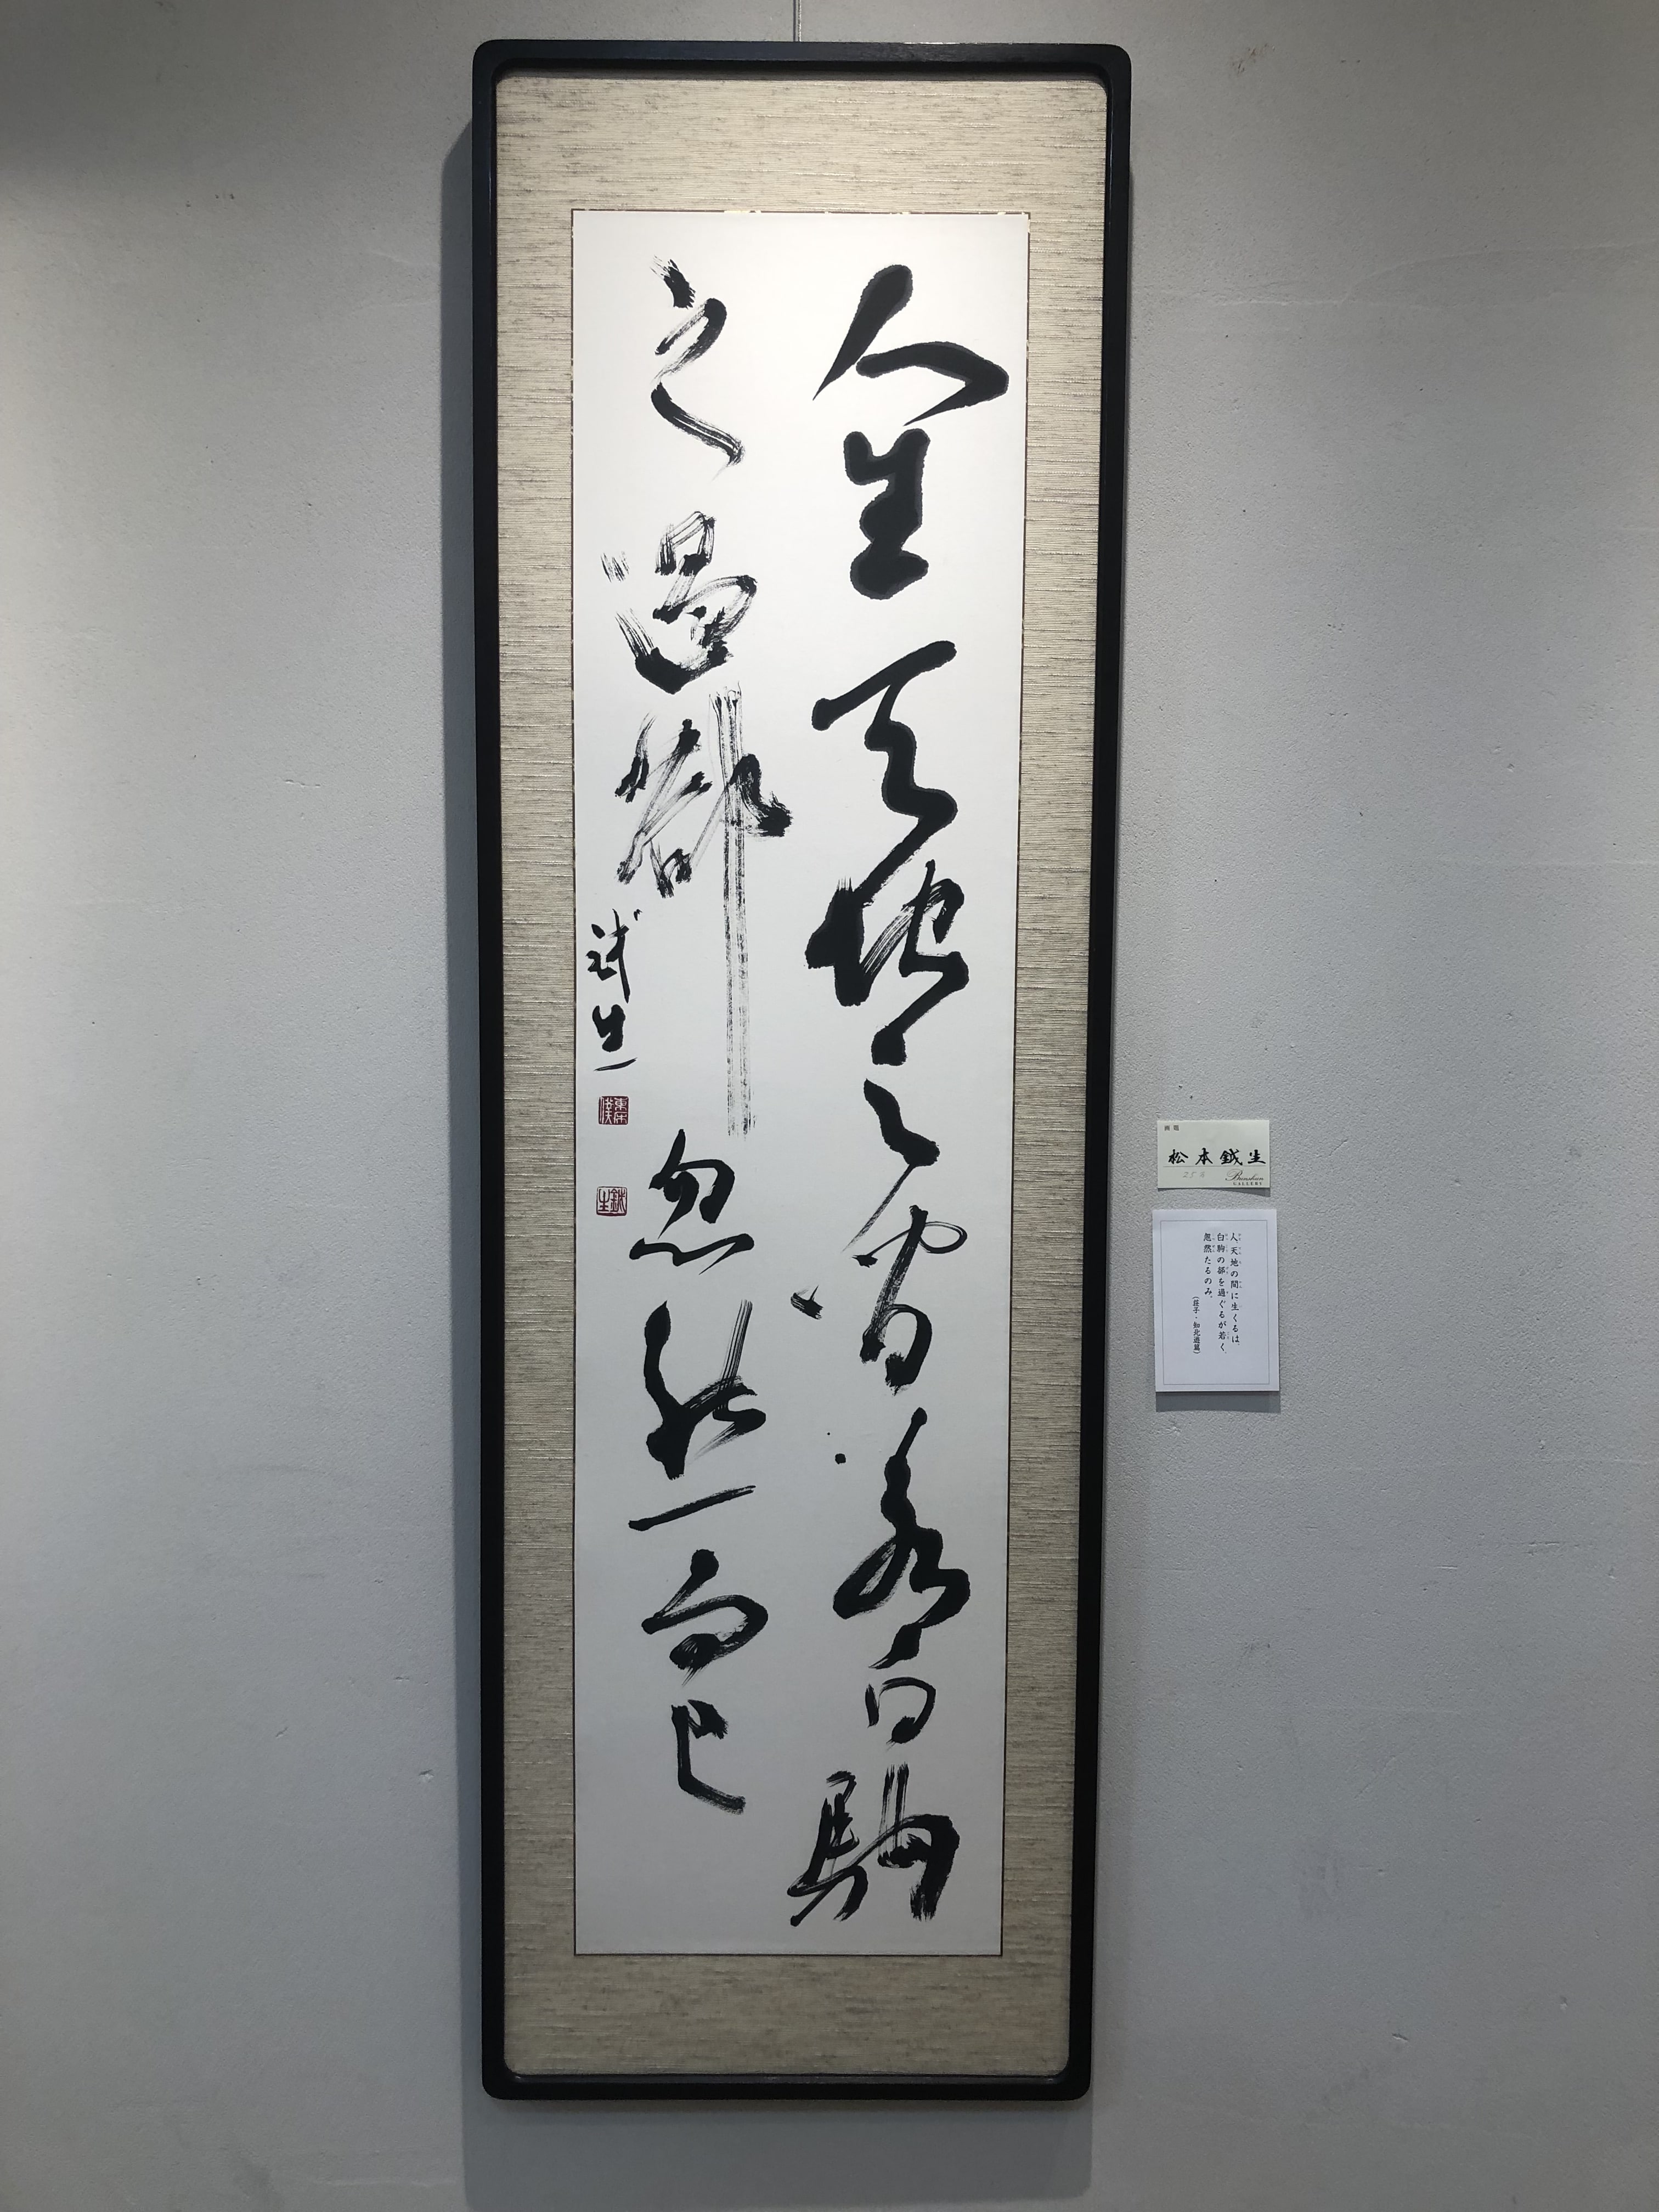 人生天地之間若白駒
之過郤忽然一而已
鉞生
鉞生
画題
松本鉞生
Bunshun
GALLERY
人、天地の間に生くるは、
白駒の郤を過ぐるが若く、
忽然たるのみ。
(荘子・知北遊篇)